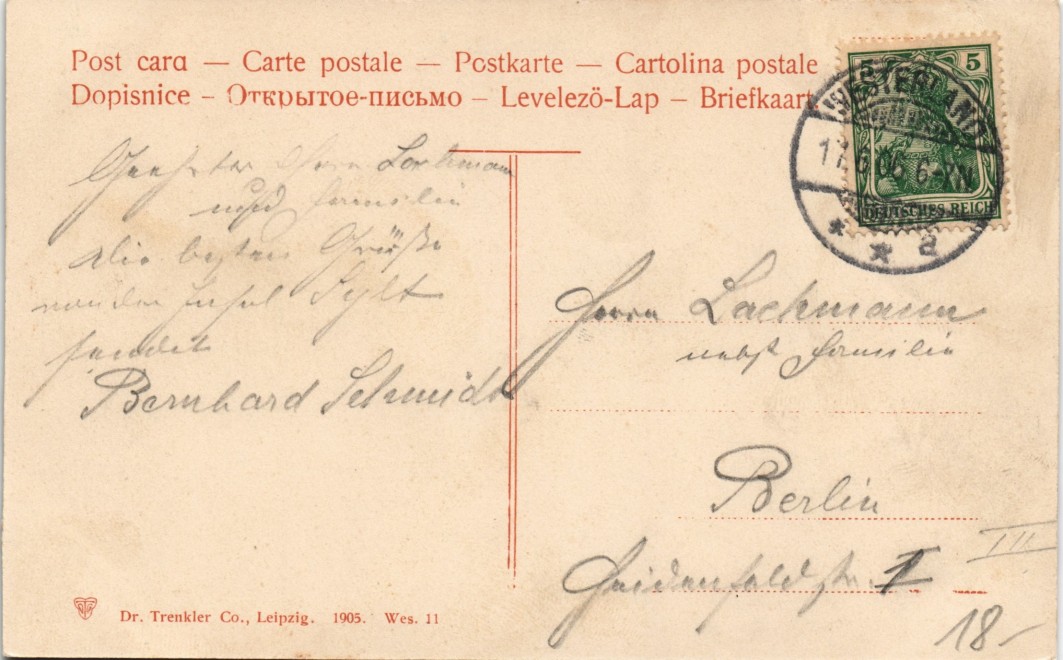 Post card — Carte postale — Postkarte — Cartolina postale
Dopisnice – Открытое-письмо – Levelező-Lap – Briefkaart
5
DEUTSCHES REICH
WESTERLAND
17.6.06 6-7N.
* * a
Geehrter Herrn Lachmann
nebst Familie
die besten Grüße
von der Insel Sylt
sendet
Bernhard Schmidt
Herrn Lachmann
nebst Familie
Berlin
Heidenfeldstr. 1
III
18-
Dr. Trenkler Co., Leipzig. 1905. Wes. 11